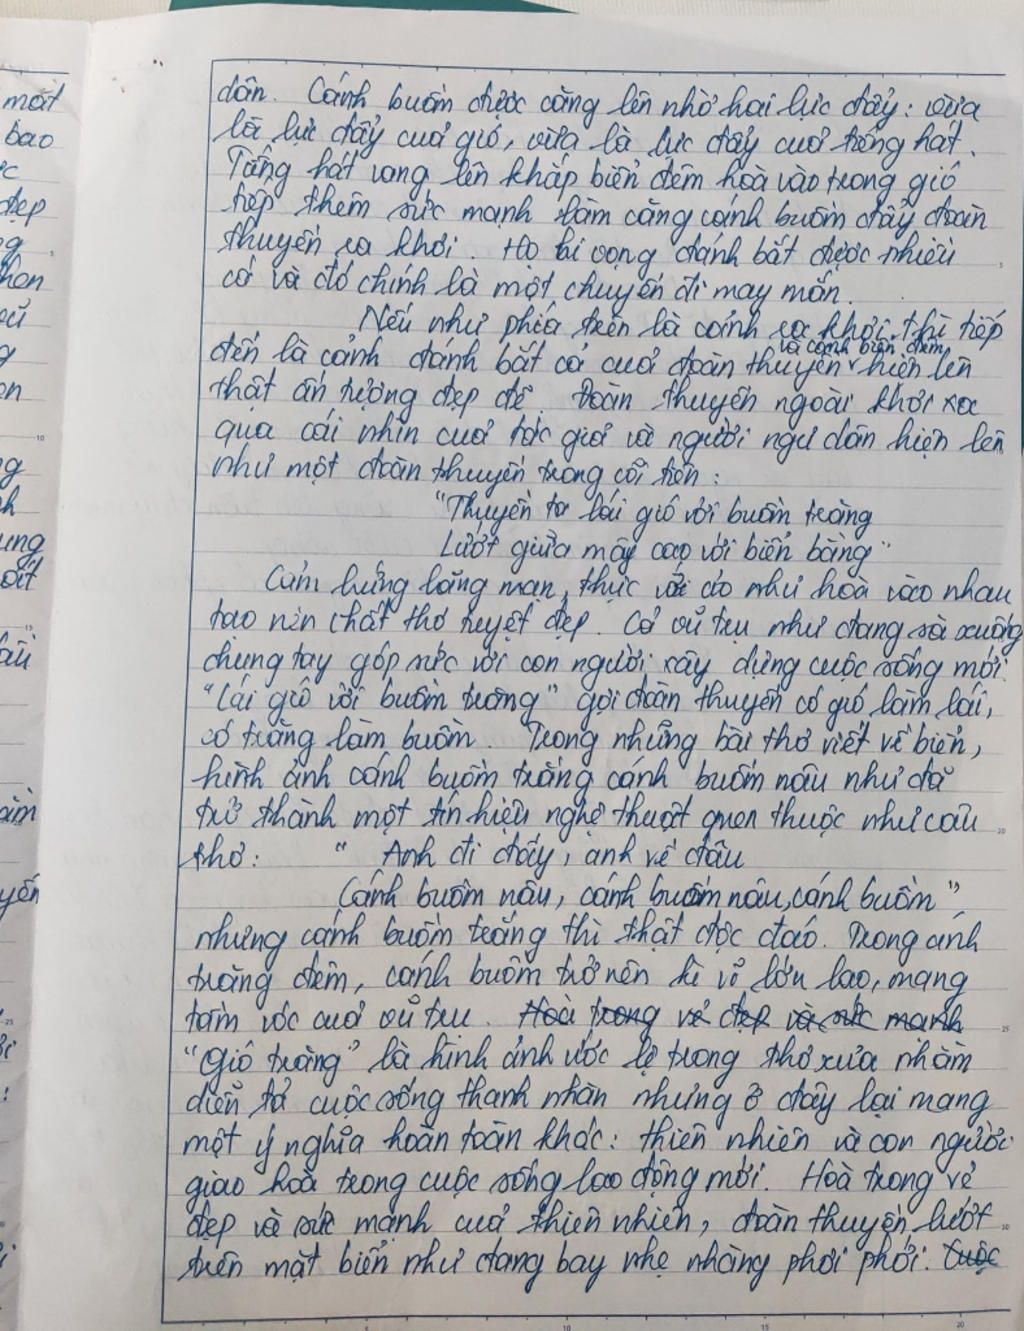 dân. Cánh buồm được căng lên nhờ hai lực đẩy: vừa
là lực đẩy của gió, vừa là lực đẩy của tiếng hát.
Tiếng hát vang lên khắp biển đêm hoà vào trong gió
tiếp thêm sức mạnh làm căng cánh buồm đẩy đoàn
thuyền ra khơi. Họ hi vọng đánh bắt được nhiều
cá và đó chính là một chuyến đi may mắn.
Nếu như phía trên là cảnh ra khơi thì tiếp
đến là cảnh đánh bắt cá của đoàn thuyền và cảnh biển đêm hiện lên
thật ấn tượng đẹp đẽ. Đoàn thuyền ngoài khơi xa
qua cái nhìn của tác giả và người ngư dân hiện lên
như một đoàn thuyền trong cõi tiên:
"Thuyền ta lái gió với buồm trăng
Lướt giữa mây cao với biển bằng"
Cảm hứng lãng mạn, thực và ảo như hoà vào nhau
tạo nên chất thơ tuyệt đẹp. Cả vũ trụ như đang sà xuống
chung tay góp sức với con người xây dựng cuộc sống mới.
"Lái gió với buồm trăng" gợi đoàn thuyền có gió làm lái,
có trăng làm buồm. Trong những bài thơ viết về biển,
hình ảnh cánh buồm trắng cánh buồm nâu như đã
trở thành một tín hiệu nghệ thuật quen thuộc như câu
thơ: " Anh đi đấy, anh về đâu
Cánh buồm nâu, cánh buồm nâu, cánh buồm"
nhưng cánh buồm trăng thì thật độc đáo. Trong ánh
trăng đêm, cánh buồm trở nên kì vĩ lớn lao, mang
tầm vóc của vũ trụ. Hoà trong vẻ đẹp và sức mạnh
"Gió trăng" là hình ảnh ước lệ trong thơ xưa nhằm
diễn tả cuộc sống thanh nhàn nhưng ở đây lại mang
một ý nghĩa hoàn toàn khác: thiên nhiên và con người
giao hoà trong cuộc sống lao động mới. Hoà trong vẻ
đẹp và sức mạnh của thiên nhiên, đoàn thuyền lướt
trên mặt biển như đang bay nhẹ nhàng phơi phới. Cuộc